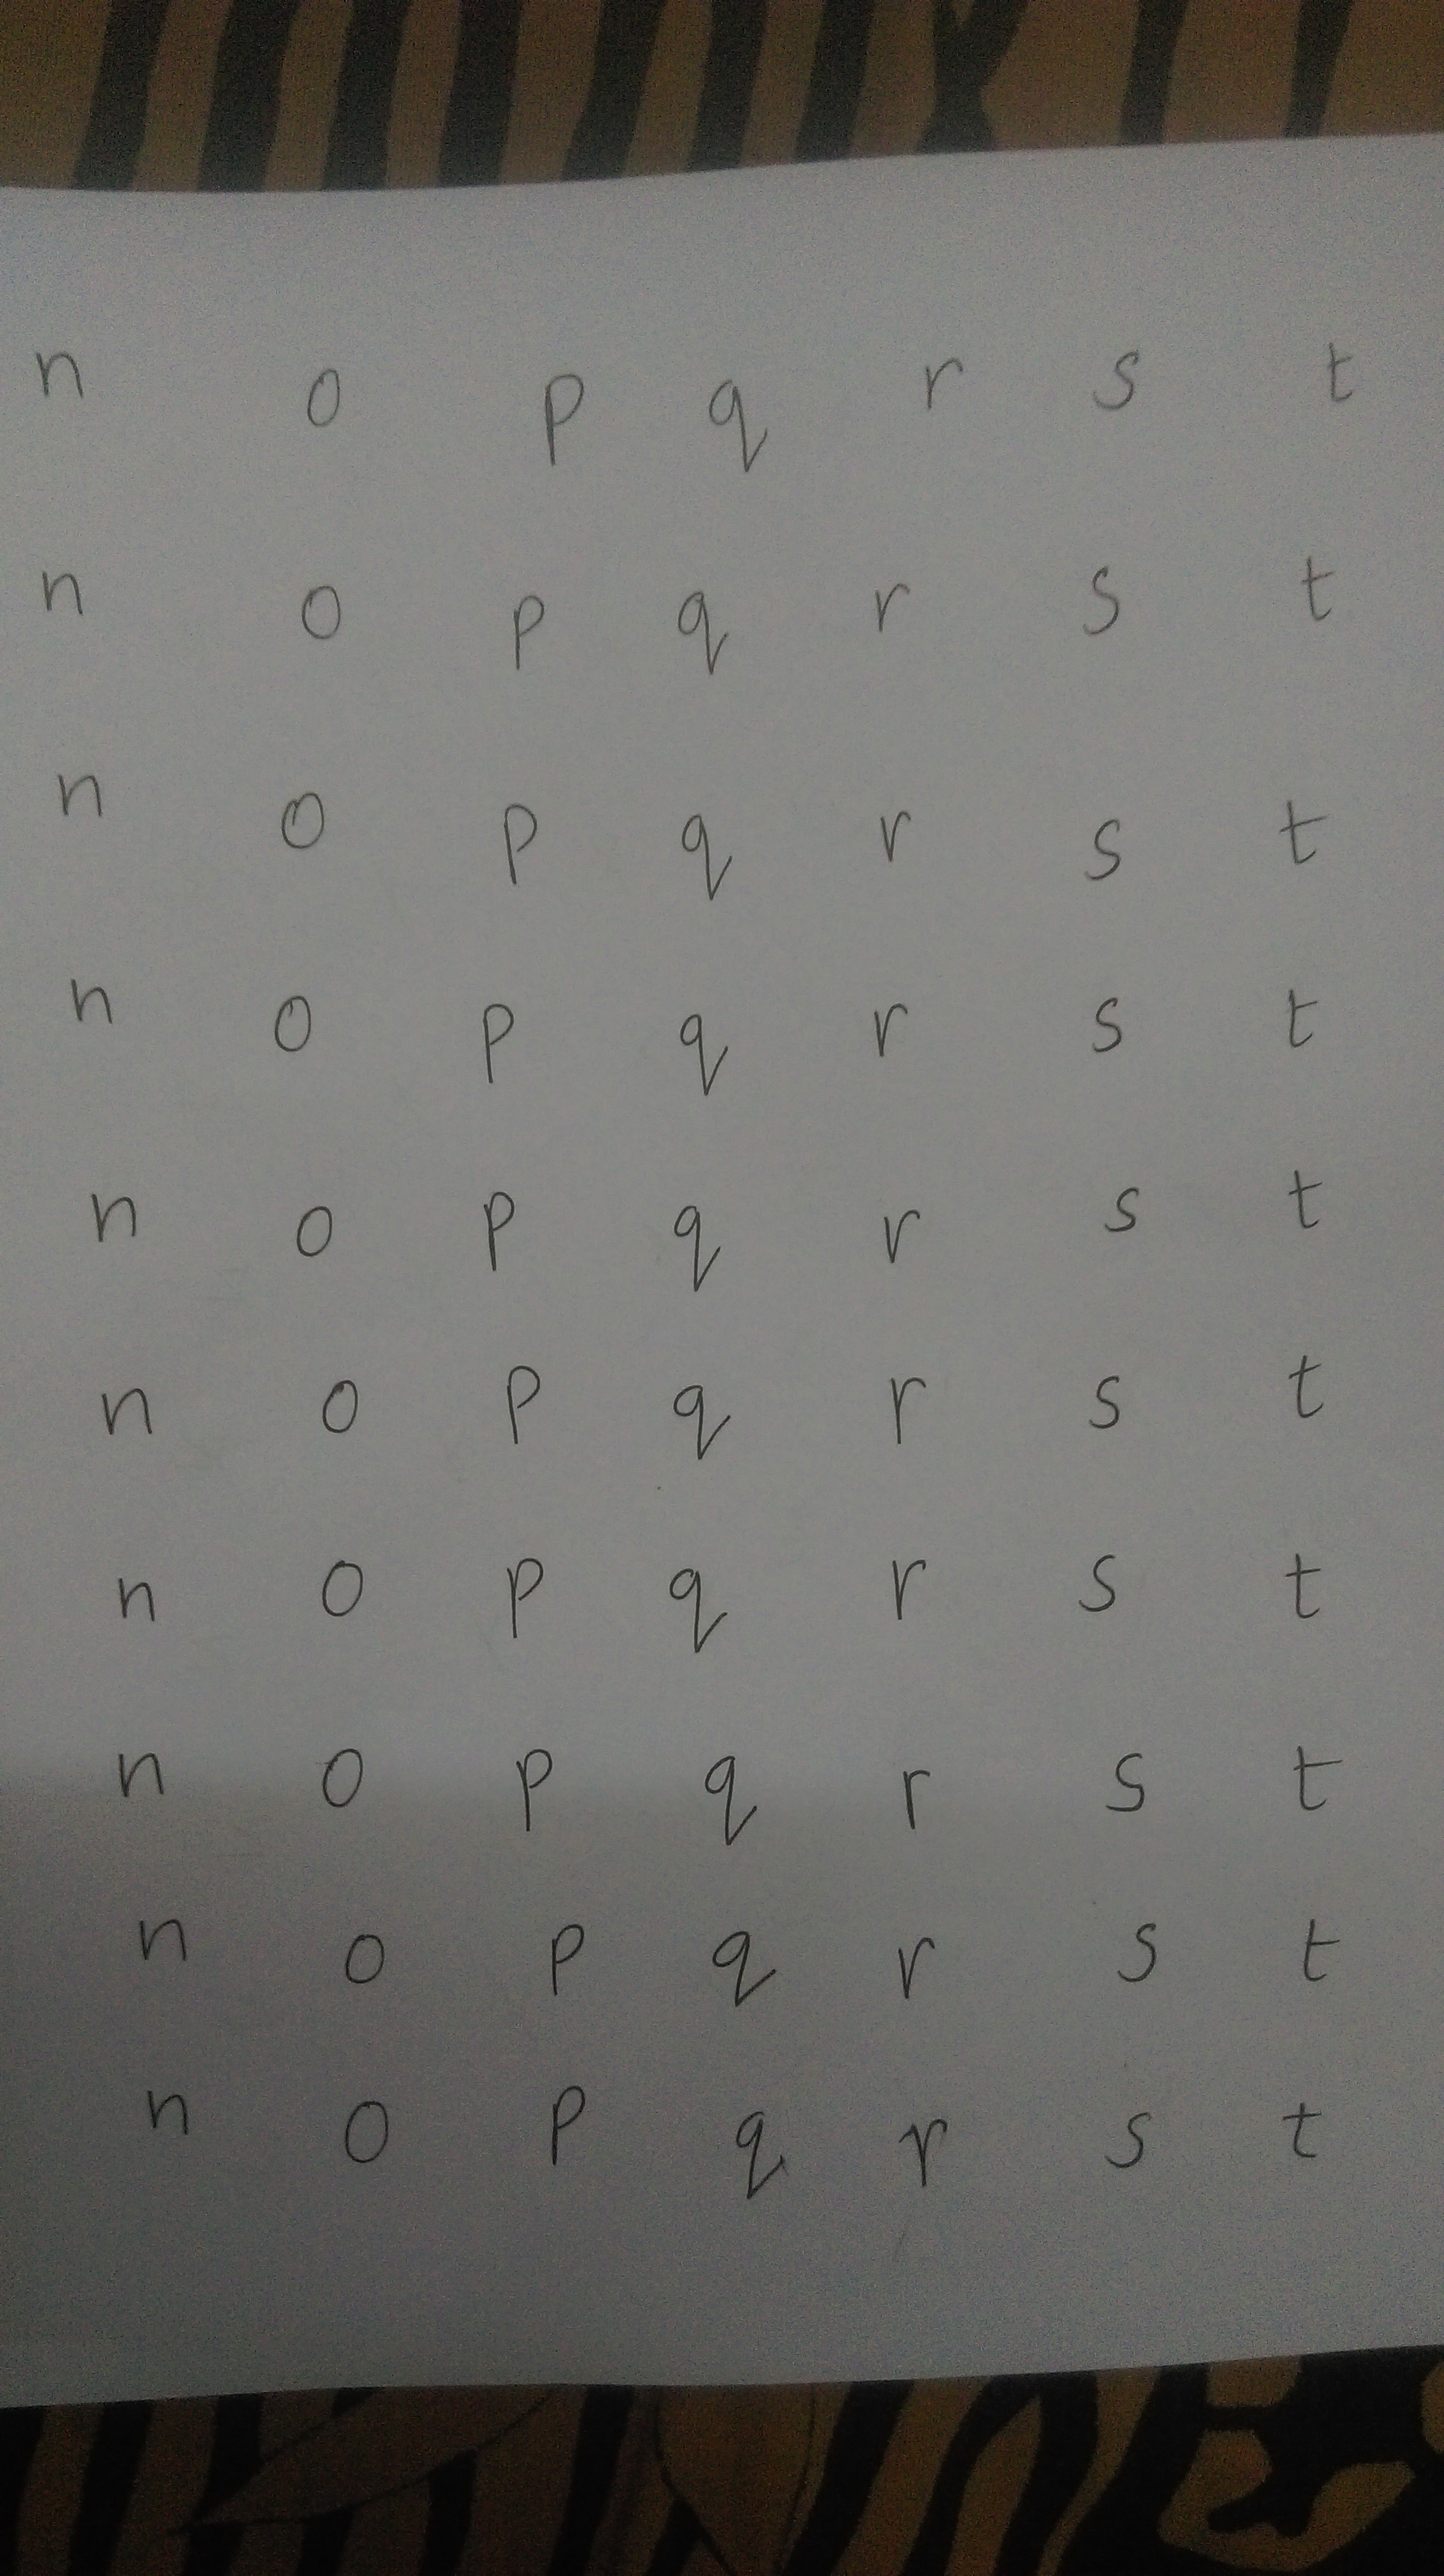 n o p q r s t
n o p q r s t
n o p q r s t
n o p q r s t
n o p q r s t
n o p q r s t
n o p q r s t
n o p q r s t
n o p q r s t
n o p q r s t